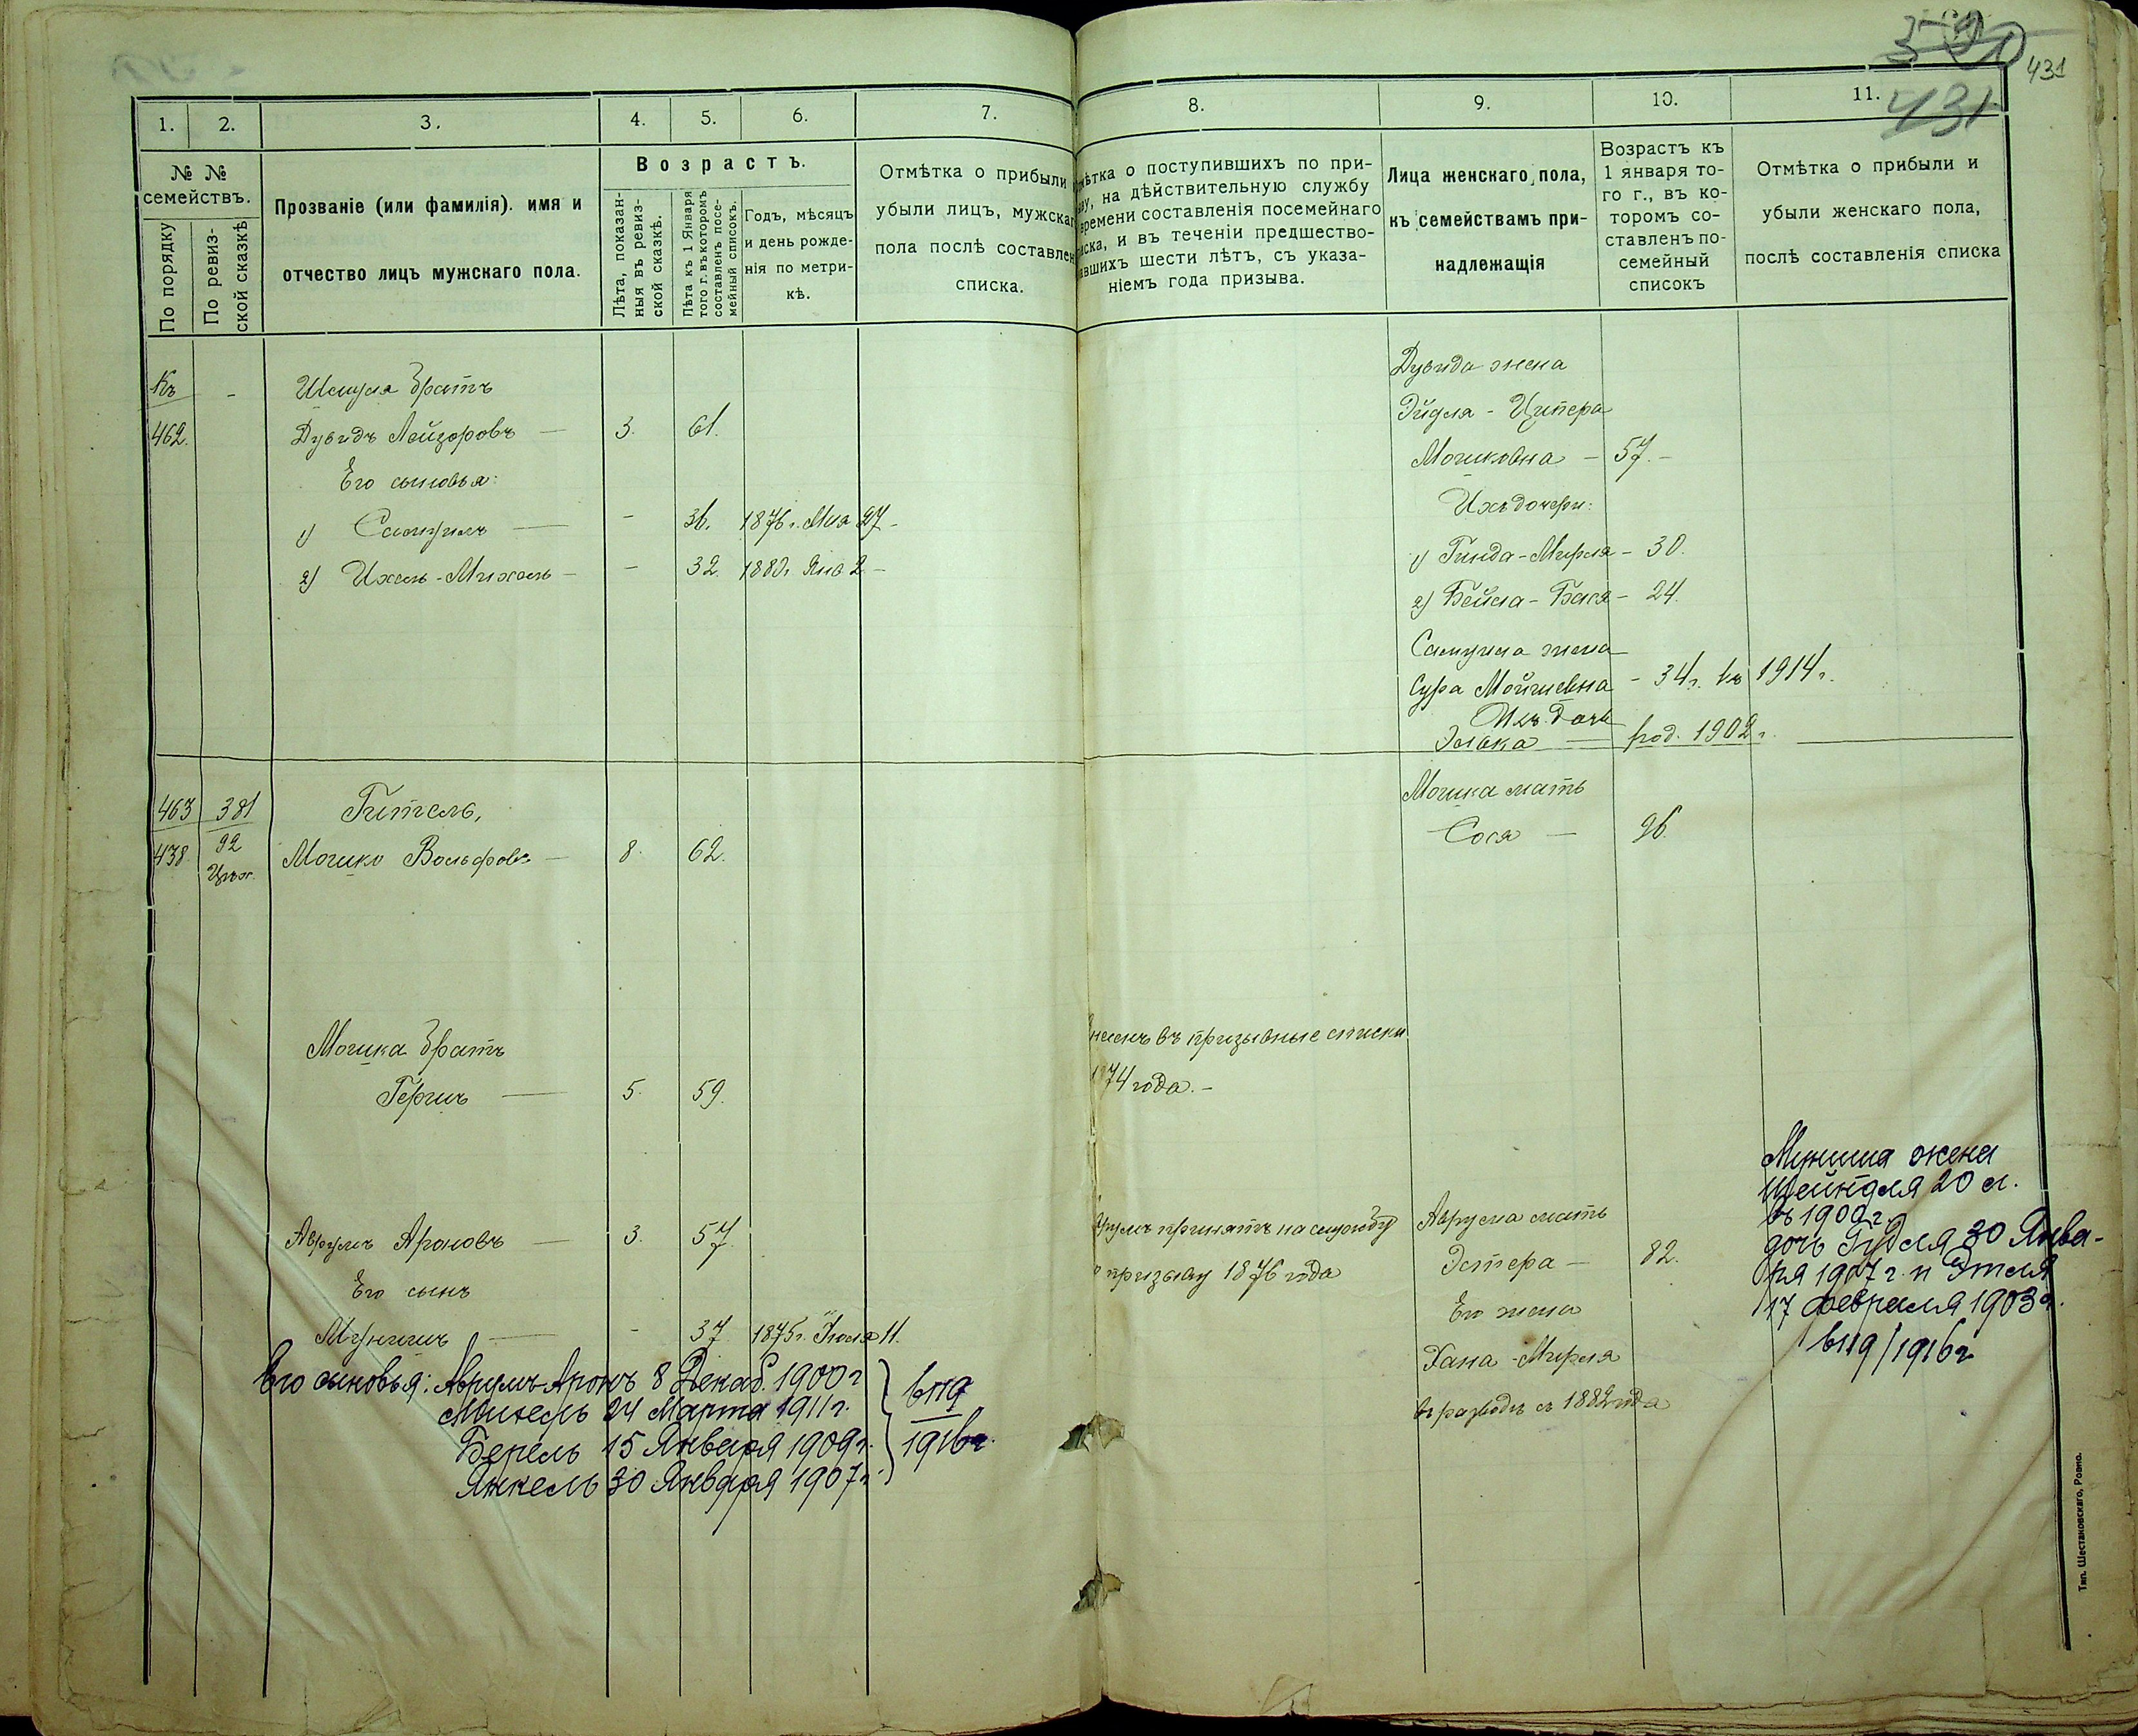 431
431
1. 2. 3. 4. 5. 6. 7.
№ № семействъ.
По порядку
По ревизской сказкѣ
Прозваніе (или фамилія). имя и
отчество лицъ мужскаго пола.
Возрастъ.
Лѣта, показан-
ныя въ ревиз-
ской сказкѣ.
Лѣта къ 1 Января
того г. въ которомъ
составленъ посе-
мейный списокъ.
Годъ, мѣсяцъ
и день рожде-
нія по метри-
кѣ.
Отмѣтка о прибыли
убыли лицъ, мужскаг
пола послѣ составлен
списка.
Къ
462.
Шмуля братъ
Дувидъ Лейзоровъ — 3. 61.
Его сыновья:
1) Самуилъ — - 36. 1876 г. Мая 27 -
2) Ихель-Михель - - 32. 1880 г. Янв 2 -
463 381
438 92
Гительь,
Мошко Вольфовъ — 8. 62.
Мошка братъ
Гершъ — 5. 59.
Аврумъ Ароновъ — 3. 57.
Его сынъ
Мунишъ — - 37. 1875 г. Июля 11.
Его сыновья: Аврумъ Аронъ 8 Декаб. 1900 г
24 Марта 1911 г.
Берель 15 Января 1909 г.
Янкель 30 Января 1907 г.
1916 г.
8. 9. 10. 11.
мѣтка о поступившихъ по при-
ву, на дѣйствительную службу
времени составленія посемейнаго
иска, и въ теченіи предшество-
авшихъ шести лѣтъ, съ указа-
ніемъ года призыва.
Лица женскаго пола,
къ семействамъ при-
надлежащія
Возрастъ къ
1 января то-
го г., въ ко-
торомъ со-
ставленъ по-
семейный
списокъ
Отмѣтка о прибыли и
убыли женскаго пола,
послѣ составленія списка
Дувида жена
Эйдля - Ципера
Мошковна - 57. -
Ихъ дочери:
1) Гинда-Мирля - 30.
2) Бейла-Бася - 24.
Самуила жена
Сура Мойшевна - 34 г. къ 1914 г.
Ихъ дочь
Элька — род. 1902 г.
Мошка мать
Сося — 96.
несенъ въ призывные списки
1874 года. -
врумъ принятъ на службу
о призыву 1876 года
Аврума мать
Эстера - 82.
Его жена
Хана-Мирля
въ разводѣ съ 1882 года
Муниша жена
Шейндля 20 л.
въ 1900 г.
дочь Гудля 30 Янва-
ря 1907 г. и Этля
17 февраля 1903 г.
1916 г
Тип. Шестаковскаго, Ровно.